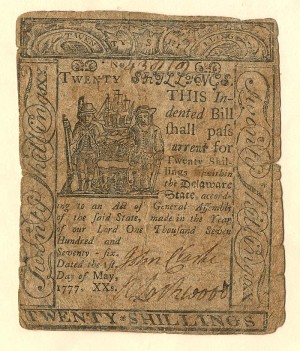 TWENTY SHILLINGS
TWENTY SHILLINGS.
THIS In-
dented Bill
shall pass
current for
Twenty Shil-
lings within
the Delaware
State, accord-
ing to an Act of General Assembly
of the said State, made in the Year
of our Lord One Thousand Seven
Hundred and
Seventy-six.
Dated the 1st
Day of May,
1777. XXs.
TWENTY SHILLINGS